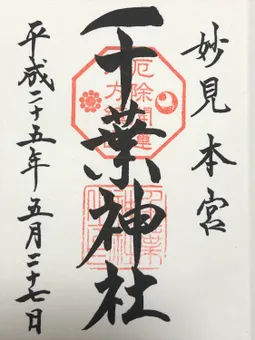 妙見本宮
千葉神社
平成二十五年五月二十七日
厄除開運